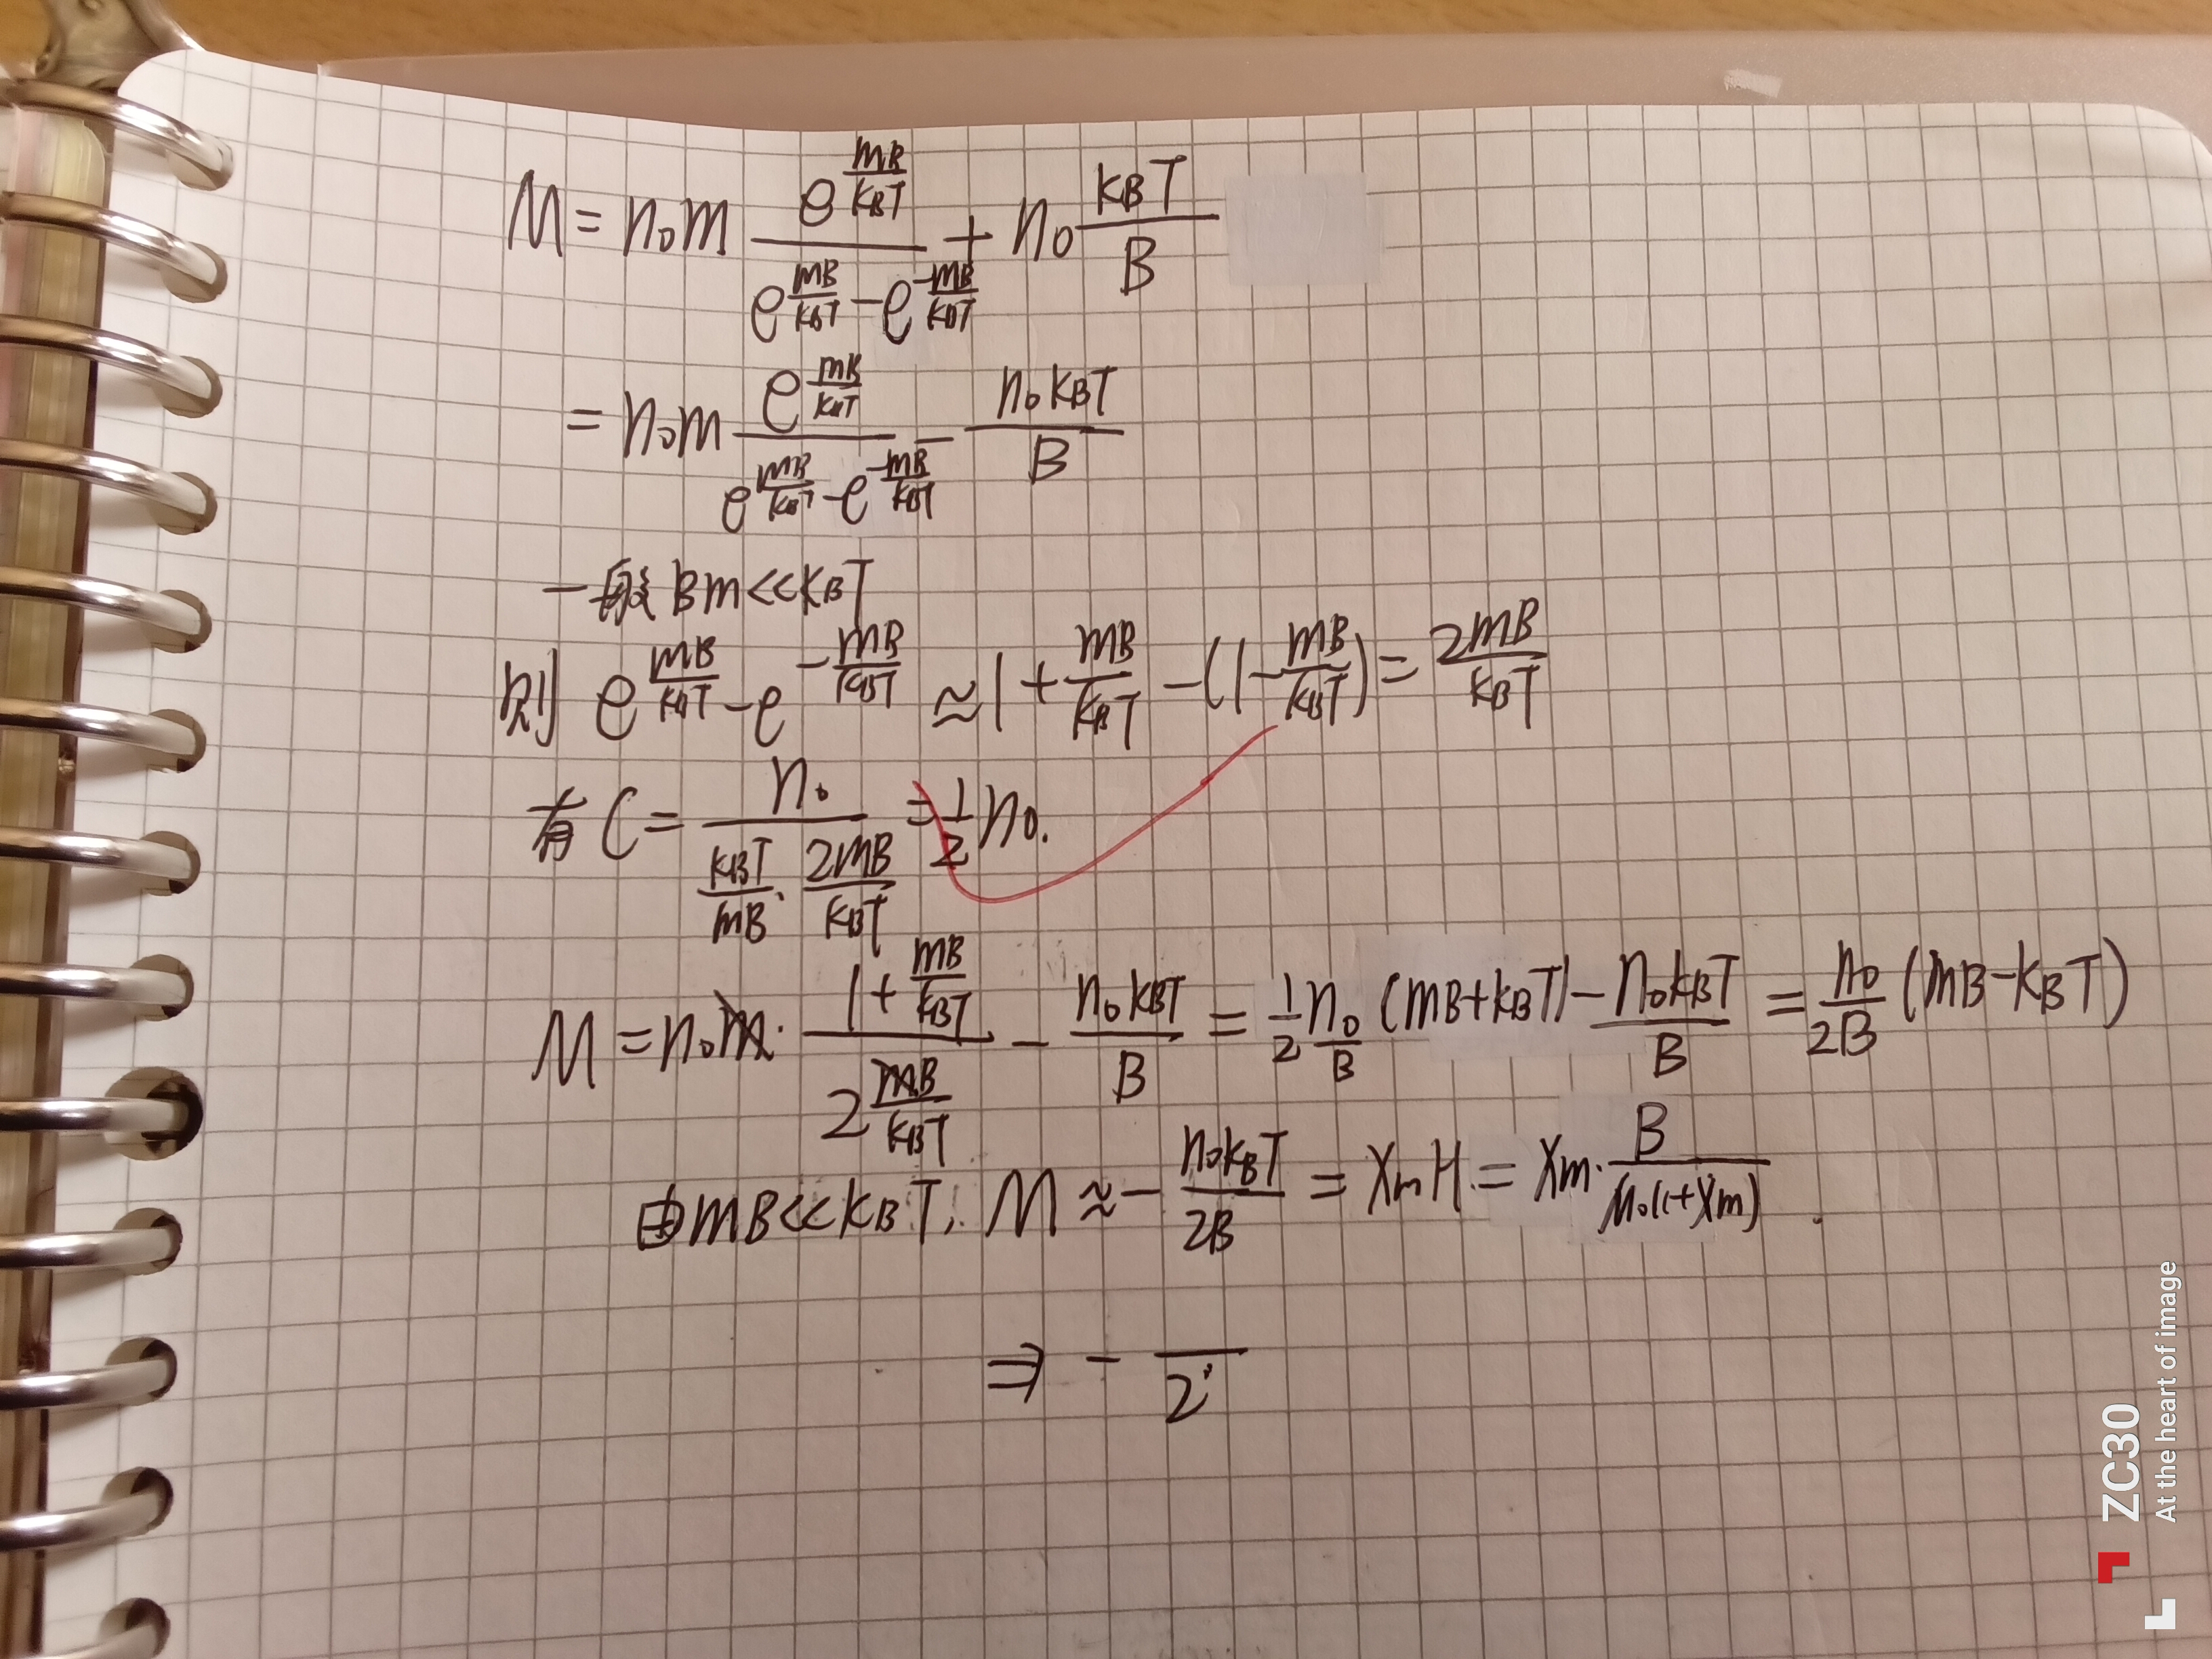 M = n₀m e^(mB/k_BT) / (e^(mB/k_BT) - e^(-mB/k_BT)) + n₀ k_BT/B
= n₀m e^(mB/k_BT) / (e^(mB/k_BT) - e^(-mB/k_BT)) - n₀k_BT/B
一般 Bm<<k_BT
则 e^(mB/k_BT) - e^(-mB/k_BT) ≈ 1 + mB/k_BT - (1 - mB/k_BT) = 2mB/k_BT
有 C = n₀ / (k_BT/mB · 2mB/k_BT) = 1/2 n₀.
M = n₀m · (1 + mB/k_BT) / (2 mB/k_BT) - n₀k_BT/B = 1/2 n₀/B (mB+k_BT) - n₀k_BT/B = n₀/2B (mB-k_BT)
由mB<<k_BT, M ≈ - n₀k_BT/2B = χmH = χm · B/(μ₀(1+χm)) .
⇒ - /2
ZC30
At the heart of image